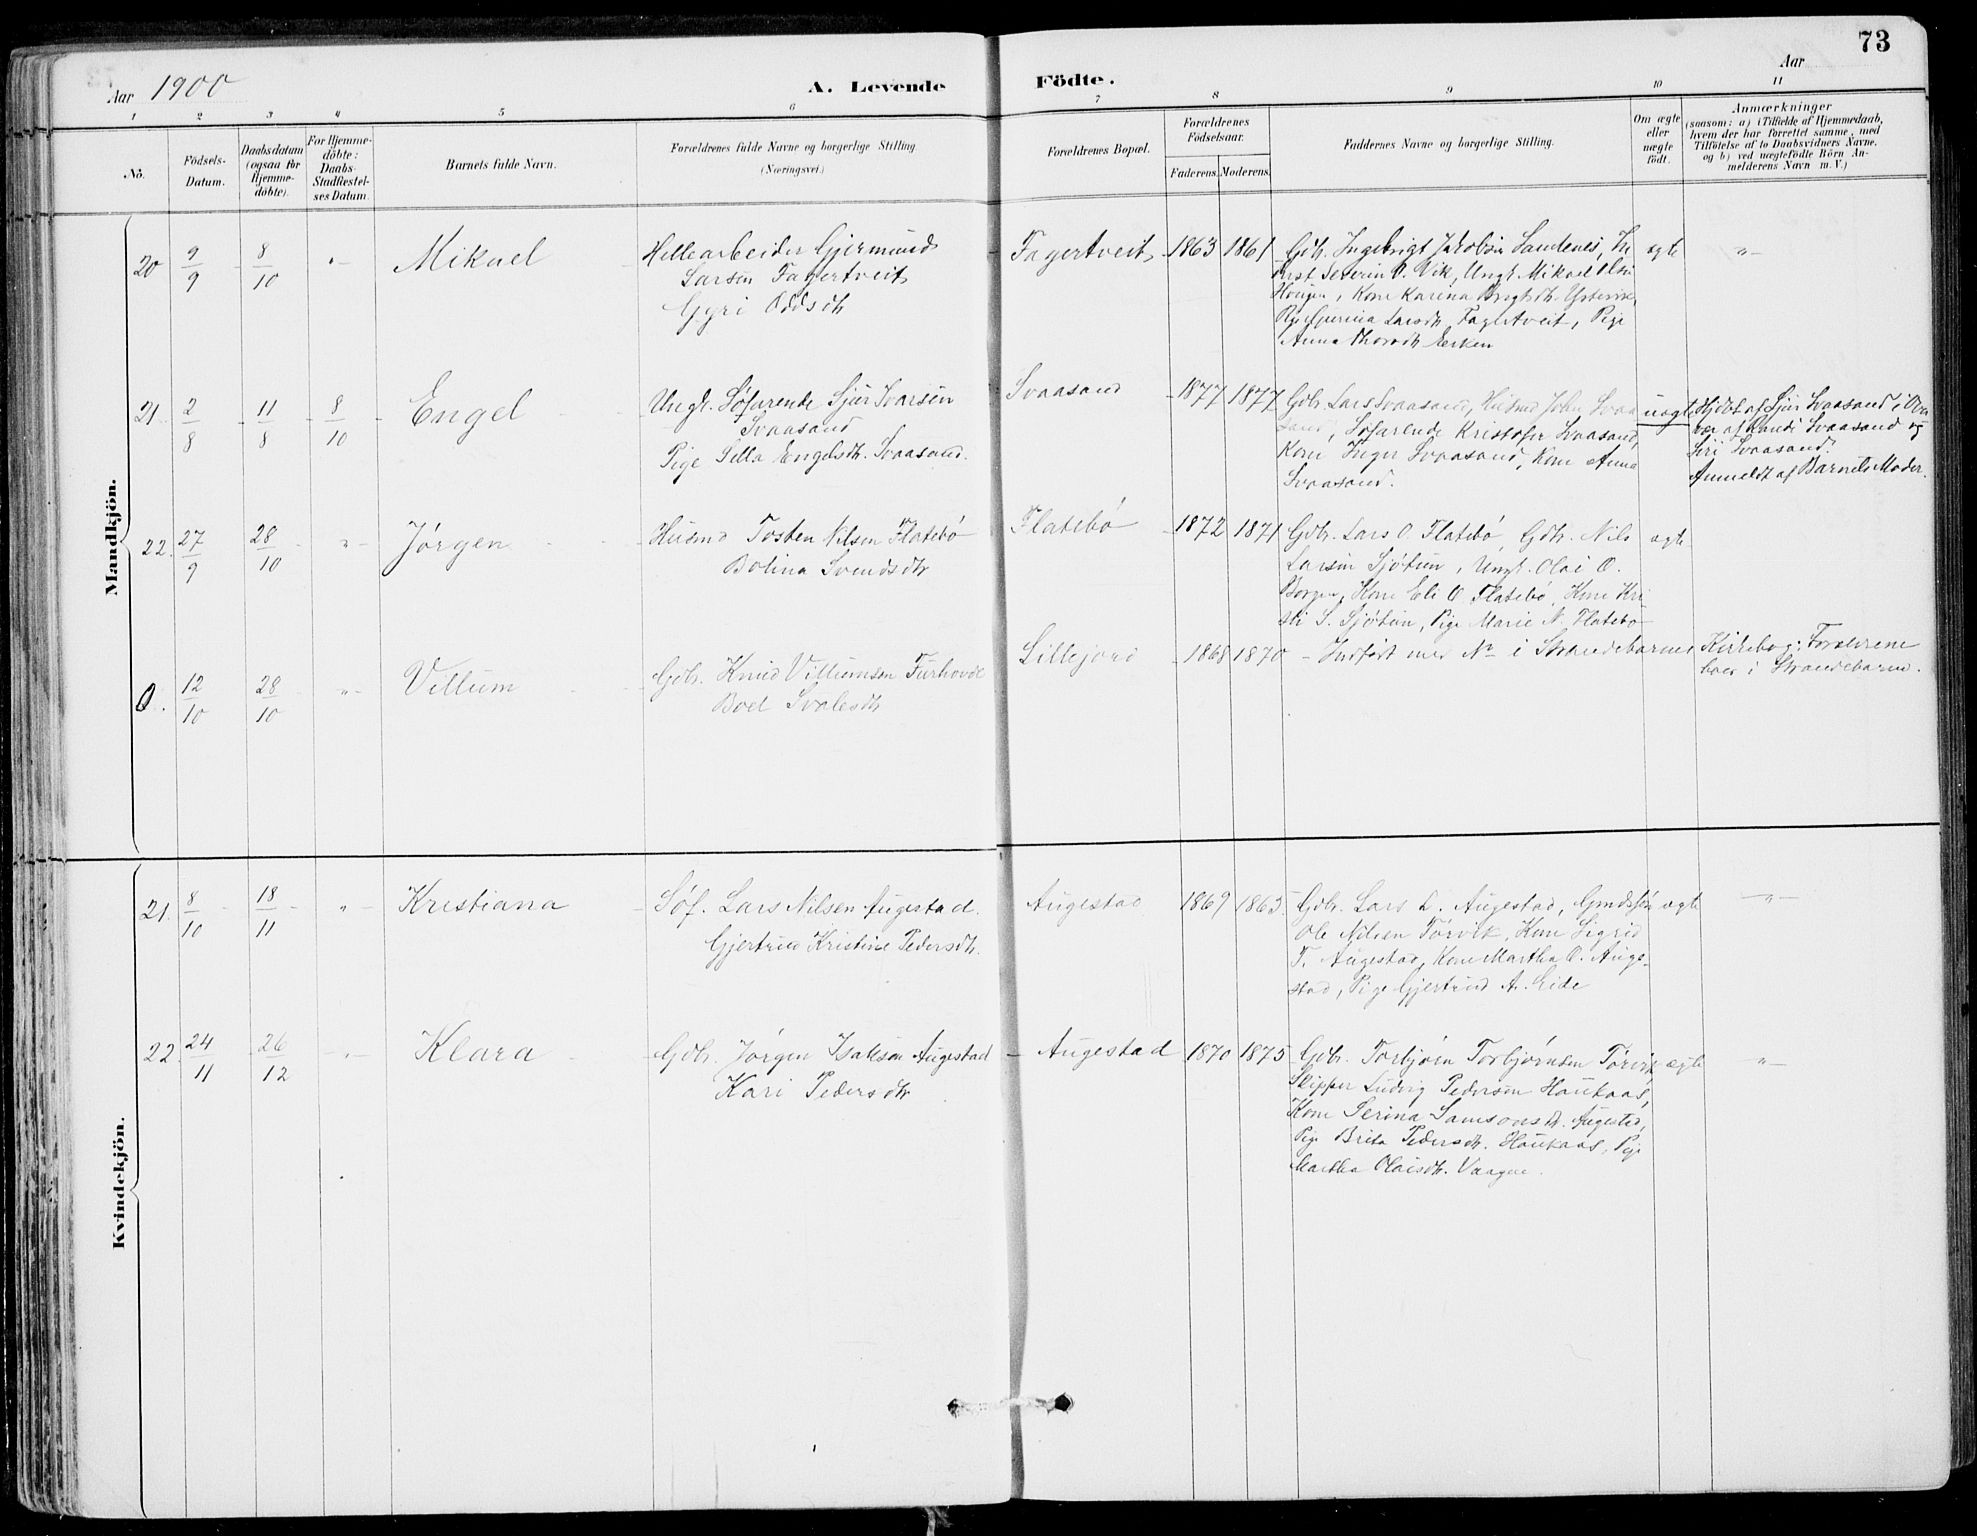 73
Aar 1900
A. Levende Födte.
Aar
1 2 3 4 5 6 7 8 9 10 11
No.
Födsels-Datum.
Daabsdatum (ogsaa for Hjemme-döbte).
For Hjemme-döbte: Daabs-Stadfæstel-ses Datum.
Barnets fulde Navn.
Forældrenes fulde Navne og borgerlige Stilling.
(Næringsvei.)
Forældrenes Bopæl.
Forældrenes Födselsaar.
Faderens. Moderens.
Faddernes Navne og borgerlige Stilling.
Om ægte eller uægte født.
Anmærkninger
(saasom: a) i Tilfælde af Hjemmedaab,
hvem der har forrettet samme, med
Tilföielse af to Daabsvidners Navne,
og b) ved uægtefödte Börn An-
melderens Navn m. V.)
Mandkjön.
20 9/9 8/10 " Mikael
Hellearbeider Gjermund
Larsen Fagertveit
Gyri Oddsdtr
Fagertveit 1863 1861
Gdbr. Ingebrigt Jakobsen Sandenes,
Severin O. Vik, Ungk. Mikael Olsen
Kone Karina
Larsdtr. Fagertveit, Pige
Anna
ægte "
21. 2/8 11/8 8/10 Engel
Ungk. Søfarende Sjur Ivarsen
Svaasand
Pige Silla Engelsdtr. Svaasand.
Svaasand 1877 1877
Gdbr. Lars Svaasand, Husmd John Svaa
sand, Søfarende Kristofer Svaasand,
Kone Inger Svaasand, Kone Anna
Svaasand.
uægte
Hjdbt af Sjur Svaasand i Over
vær af Svaasand og
Siri Svaasand.
Anmeldt af Barnets Moder.
22. 27/9 28/10 " Jørgen
Husmd Tosten Nilsen Flatebø
Bolina Svendsdtr
Flatebø 1872 1871
Gdbr. Lars O. Flatebø, Gdbr. Nils
Larsen Sjøtun, Ungk. Olai O.
Kone Eli O. Flatebø, Kone Kri-
sti S. Sjøtun, Pige Marie N. Flatebø
ægte
0. 12/10 28/10 " Villum
Gdbr. Knud Villumsen Furhovde
Boel
Lillejord 1868 1870 - Indført med No i Strandebarms Kirkebog; Forældrene
boer i Strandebarm.
Kvindekjön.
21. 8/10 18/11 " Kristiana
Søf. Lars Nilsen Augestad.
Gjertrud Kristine Pedersdtr.
Augestad 1869 1865
Gdbr. Lars L. Augestad,
Ole Nilsen Tørvik, Kone Sigrid
T. Augestad, Kone Martha O. Auge-
stad, Pige Gjertrud A. Eide
ægte "
22. 24/11 26/12 " Klara
Gdbr. Jørgen Isaksen Augestad
Kari Pedersdtr
Augestad 1870 1875
Gdbr. Torbjørn Torbjørnsen Tørvik,
Skipper Ludvig Pedersen Haukaas,
Kone Serina Samsonsdtr. Augestad,
Pige Brita Pedersdtr. Haukaas, Pige
Martha Olaisdtr. Vaage.
ægte "